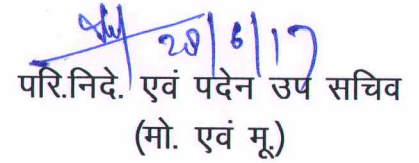 28/6/17
परि.निदे. एवं पदेन उप सचिव
(मो. एवं मू.)